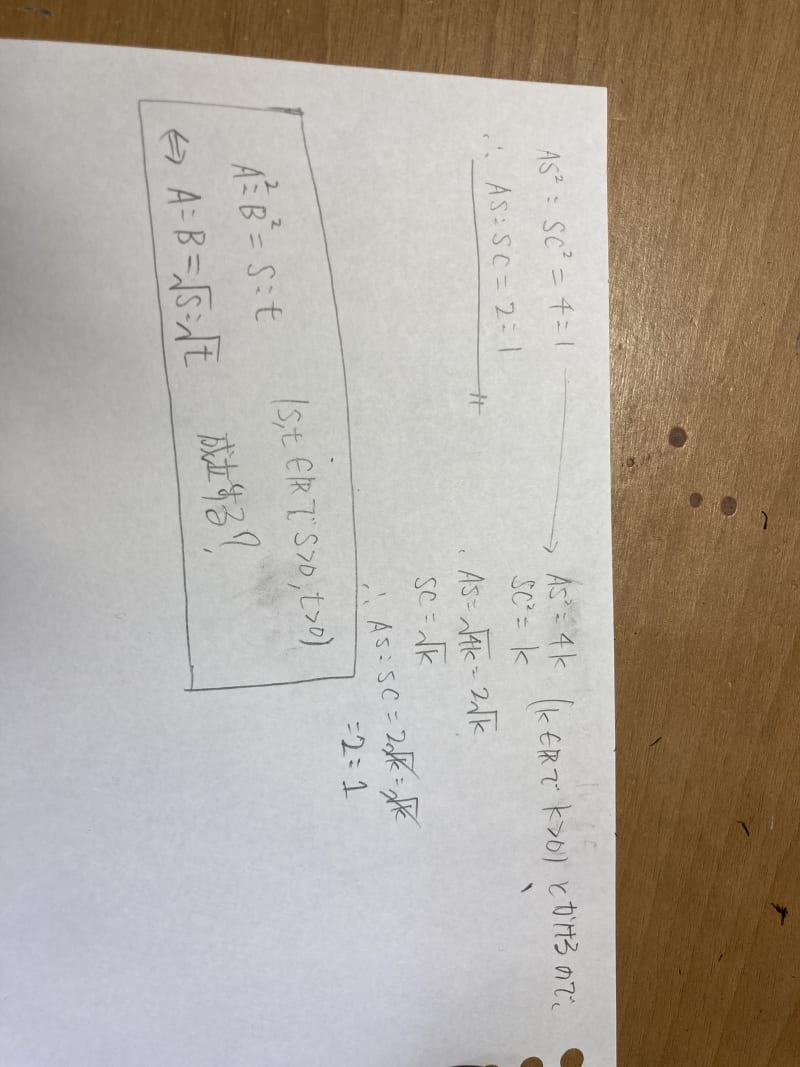 AS² : SC² = 4 : 1
∴ AS : SC = 2 : 1
→ AS² = 4k (k∈ℝで k>0) とかけるので、
SC² = k
∴ AS = √4k = 2√k
SC = √k
∴ AS : SC = 2√k : √k
= 2 : 1
A² : B² = s : t (s,t∈ℝで s>0, t>0)
⇔ A : B = √s : √t 成立する?